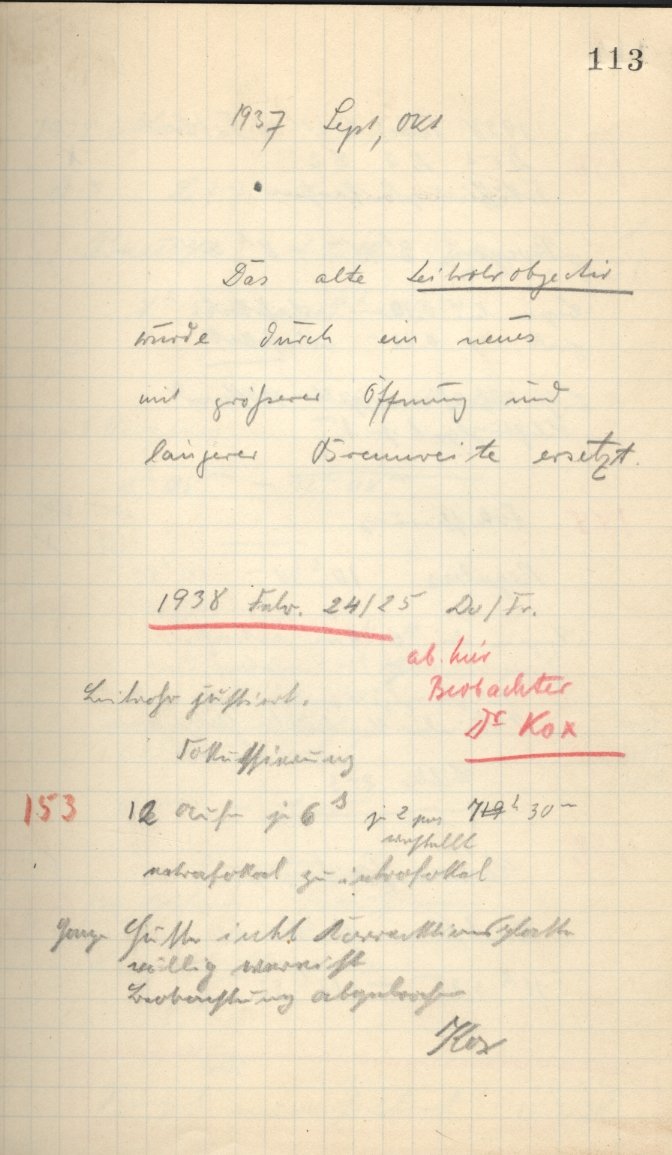 113
1937 Sept, Okt
Das alte Leitrohrobjectiv
wurde durch ein neues
mit größerer Öffnung und
längerer Brennweite ersetzt.
1938 Febr. 24/25 Do/Fr.
ab hier
Beobachter
Dr Kox
Leitrohr justiert.
Fokussierung
153 12 Aufn je 6 s je 2 h 30 m
verstellt
extrafokal zu intrafokal
Ganze inkl Korrecktionsplatte
völlig vereist
Beobachtung abgebrochen
Kox